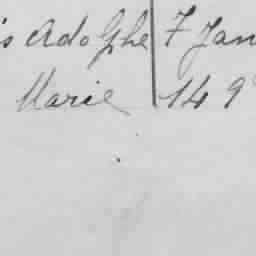 is Adolphe 7 Jan
Marie 149